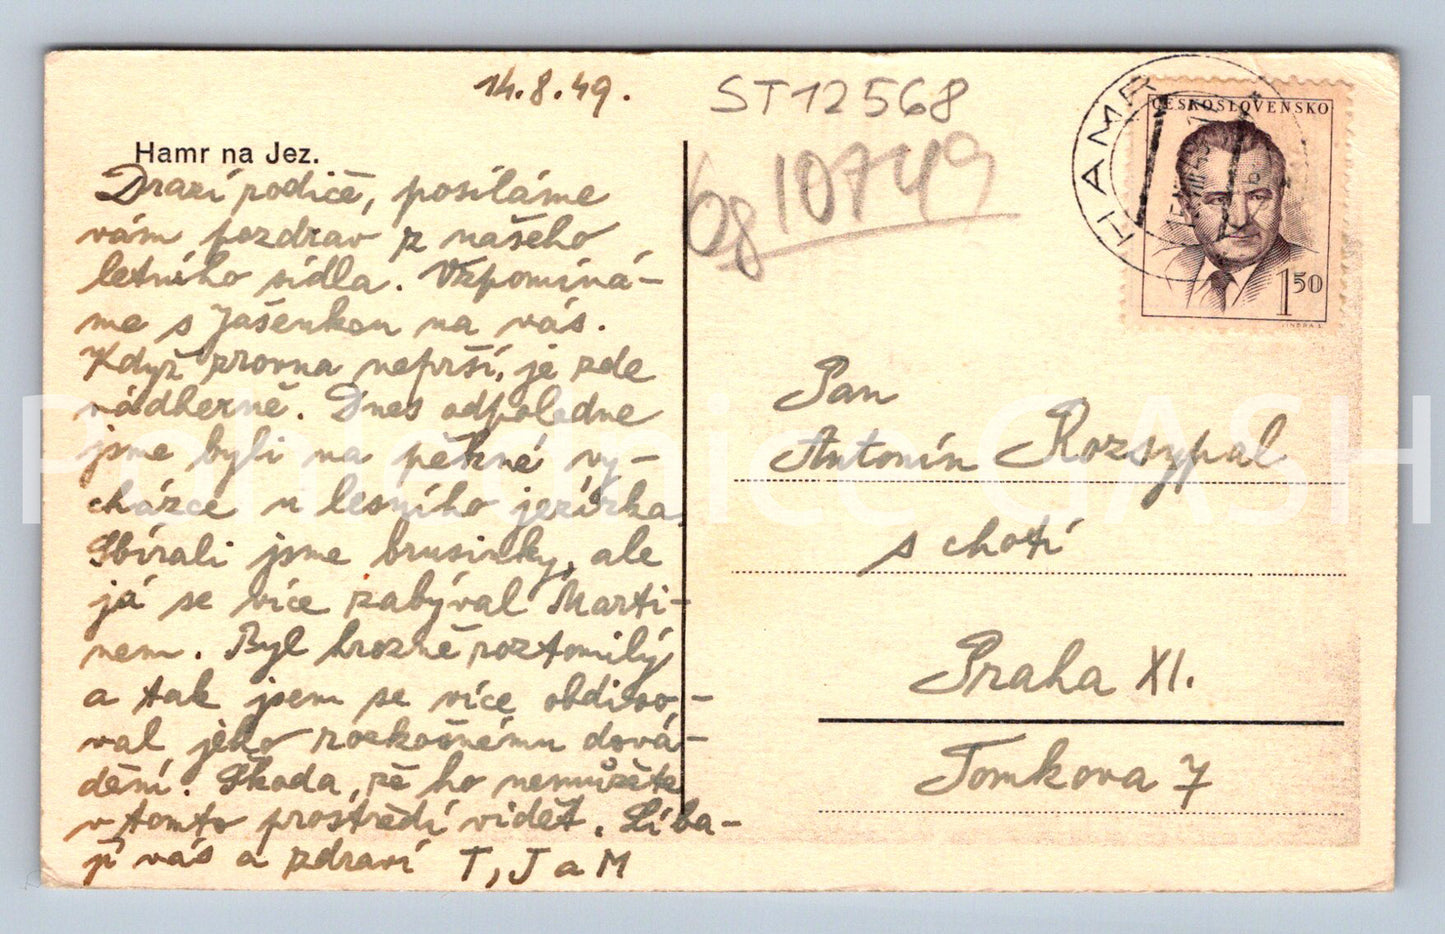 14.8.49.
ST12568
68 10749
Hamr na Jez.
Drazí rodičě, posíláme
vám pozdrav z našeho
letního sídla. Vzpomíná-
me s Jašenkou na vás.
Když zrovna neprší, je zde
nádherně. Dnes odpoledne
jsme byli na pěkné vy-
cházce u lesního jezírka.
Sbírali jsme brusinky, ale
já se více zabýval Marti-
nem. Byl hrozně roztomilý
a tak jsem se více obdivo-
val jeho rozkošnému dová-
dění. Škoda, že ho nemůžete
v tomto prostředí vidět. Líba-
jí vás a zdraví T, J a M
HAMR
ČESKOSLOVENSKO
1 50
JINDRA S.
Pan
Antonín Rozsypal
s chotí
Praha XI.
Tomkova 7
Pohlednice GASH